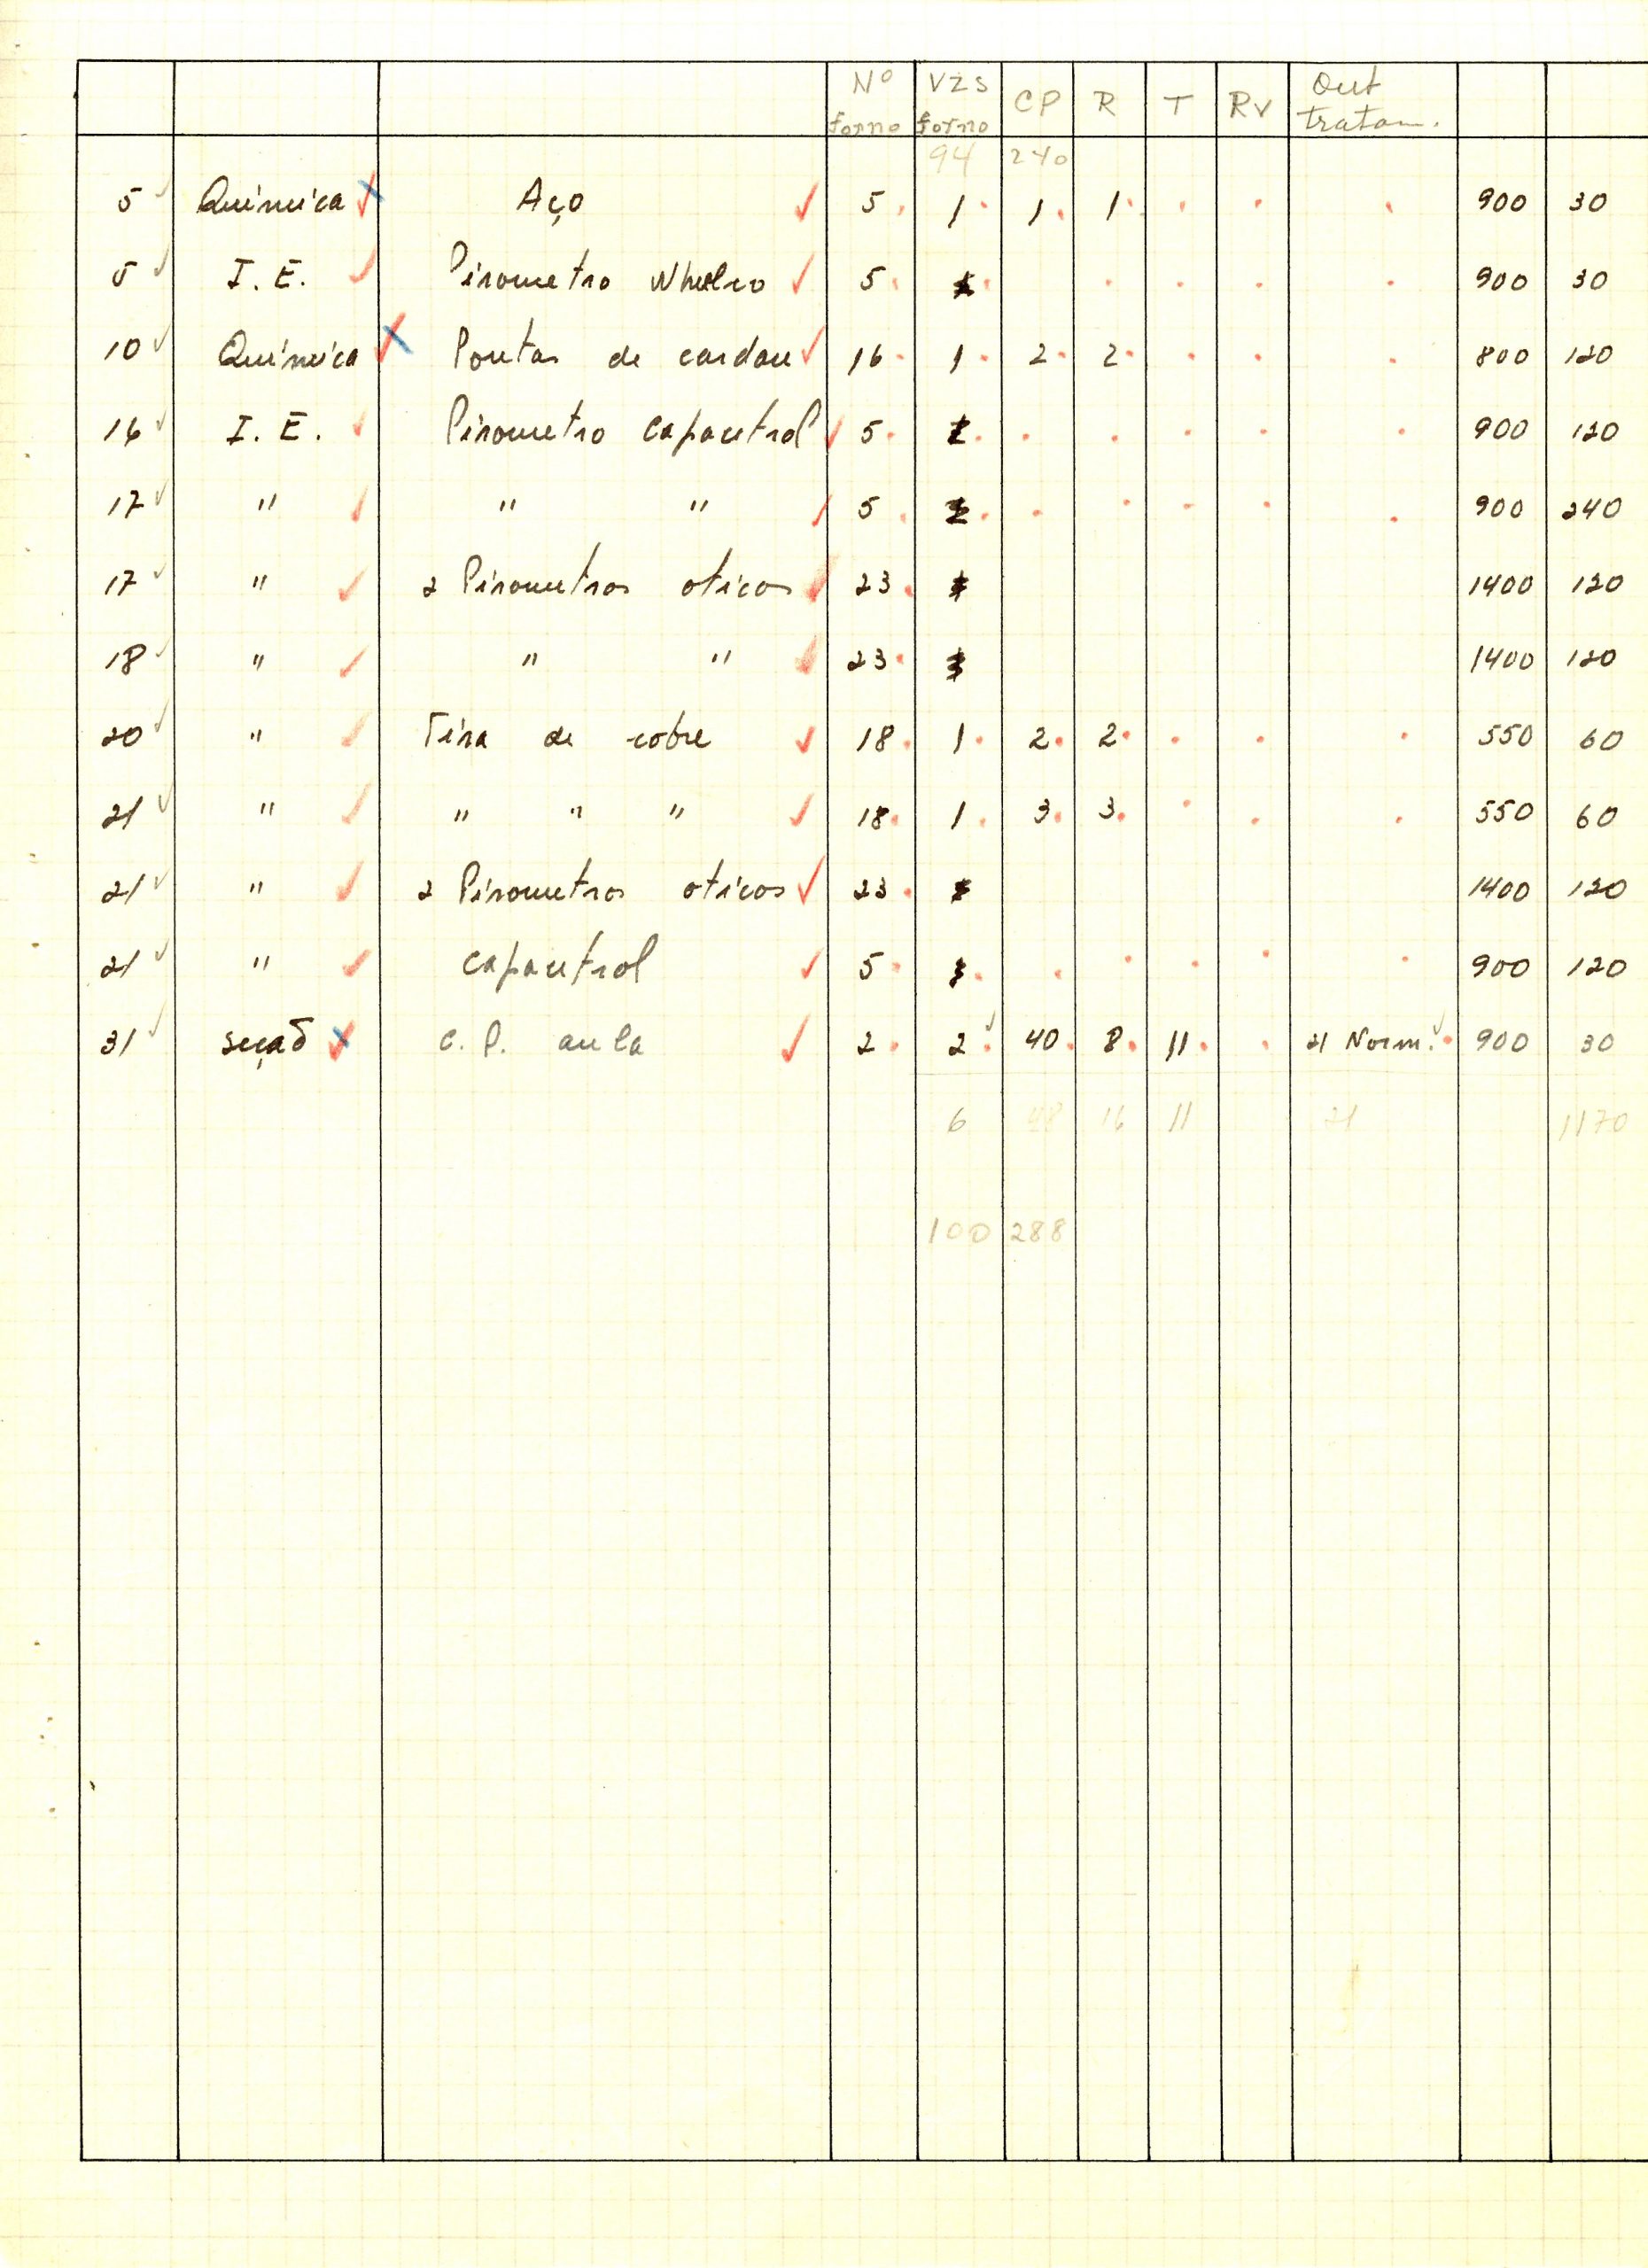 Nº forno VZS forno CP R T RV Out tratam.
94 240
5 Química Aço 5 1 1 1 900 30
5 I. E. Pirometro 5 900 30
10 Química Pontas de cardan 16 1 2 2 800 120
16 I. E. Pirometro capacitrol 5 900 120
17 " " " 5 900 240
17 " 2 Pirometros oticos 23 1400 120
18 " " " 23 1400 120
20 " Tira de cobre 18 1 2 2 550 60
21 " " " " 18 1 3 3 550 60
21 " 2 Pirometros oticos 23 1400 120
21 " capacitrol 5 900 120
31 seção C. P. aula 2 2 40 8 11 21 Norm. 900 30
6 48 16 11 21 1170
100 288